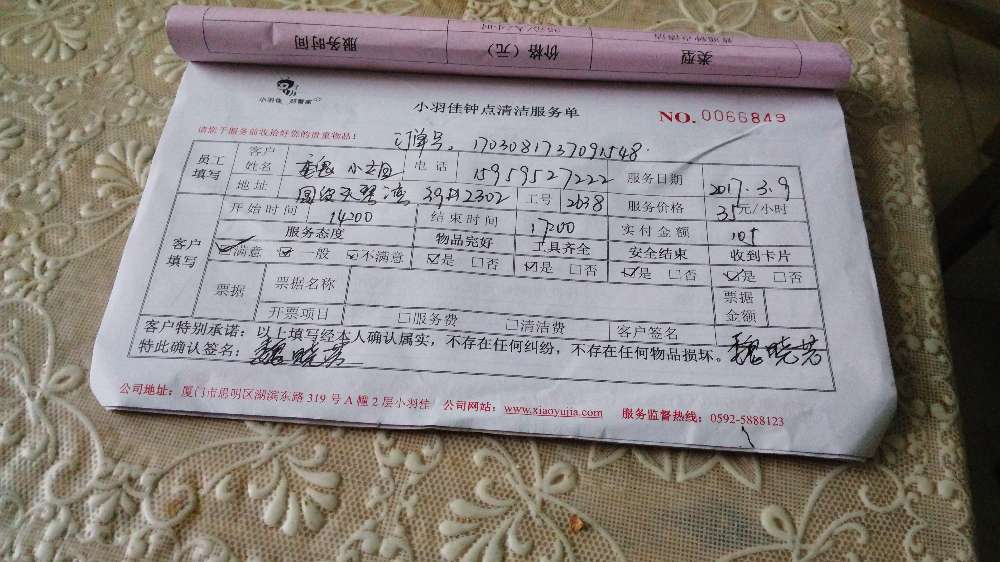 服务时间 价格（元） 类型
小羽佳
小羽佳钟点清洁服务单
NO. 0066849
请您于服务前收拾好您的贵重物品！
订单号。1703081737091548.
员工填写 客户姓名 魏小 电话 15959527222 服务日期 2017.3.9
地址 国 湾 2302 工号 2638 服务价格 35元/小时
客户填写 开始时间 14:00 结束时间 17:00 实付金额 105
服务态度 物品完好 工具齐全 安全结束 收到卡片
☑满意 ☑一般 ☑不满意 ☑是 □否 ☑是 □否 ☑是 □否 ☑是 □否
票据 票据名称 票据金额
开票项目 □服务费 □清洁费 客户签名
客户特别承诺：以上填写经本人确认属实，不存在任何纠纷，不存在任何物品损坏。魏晓芳
特此确认签名：魏晓芳
公司地址：厦门市思明区湖滨东路 319 号 A 幢 2 层小羽佳 公司网站：www.xiaoyujia.com 服务监督热线：0592-5888123